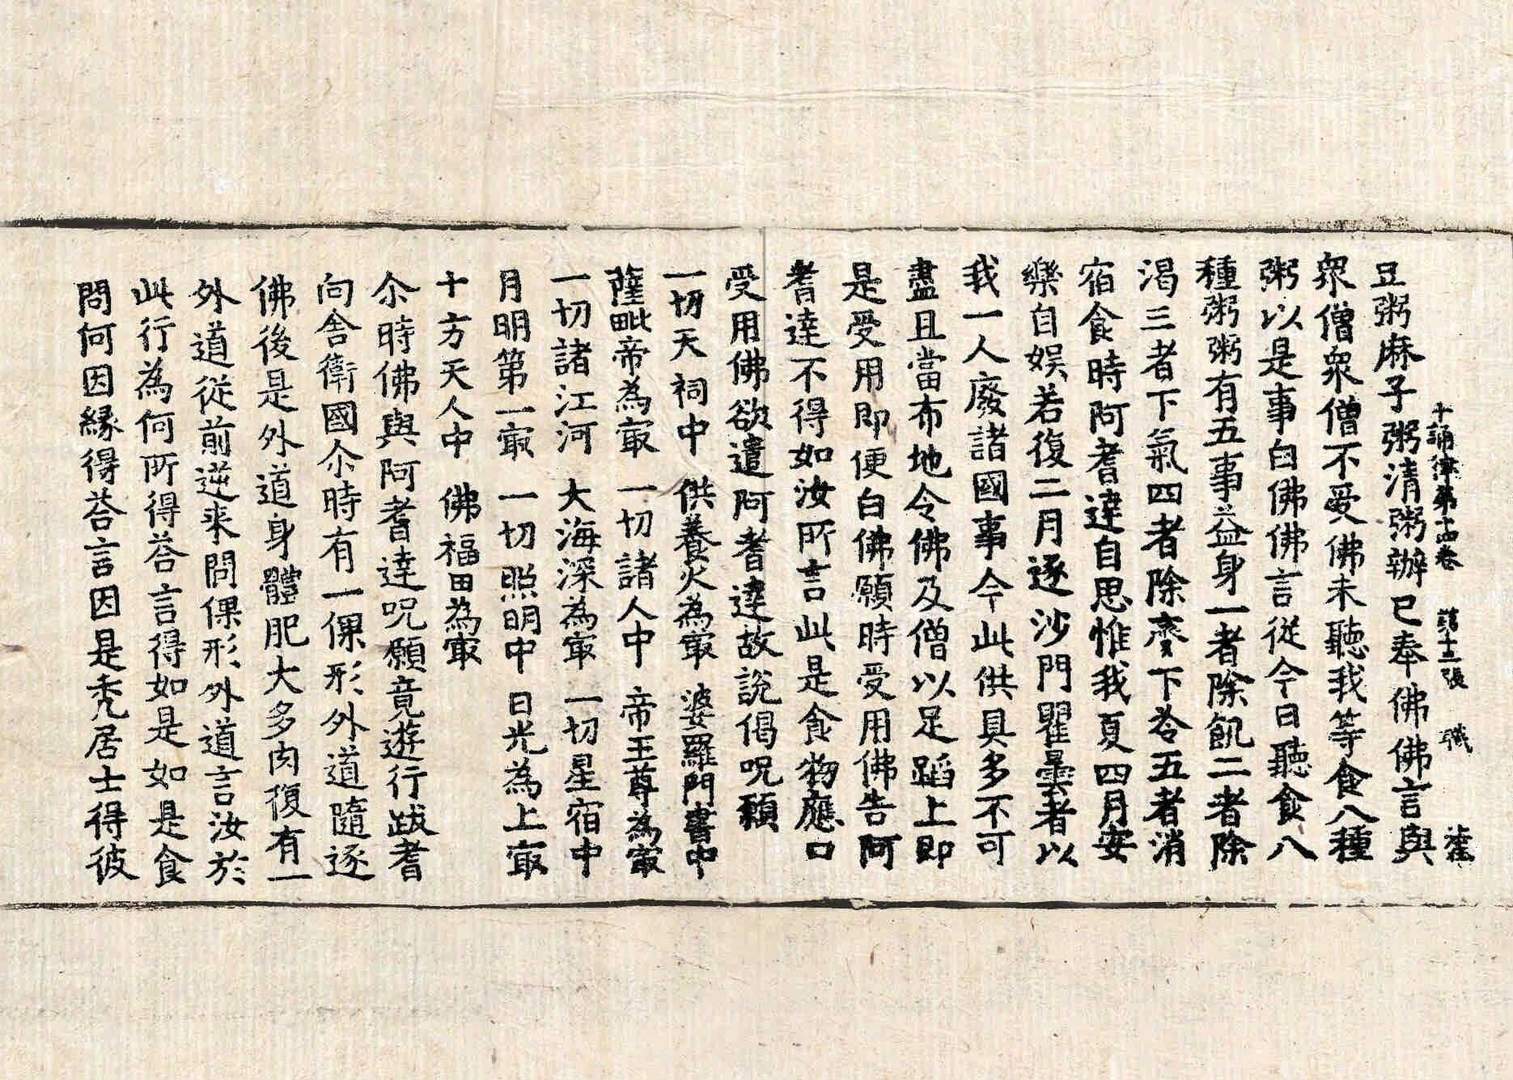 十誦律第十四卷 第十三張 職
豆粥麻子粥清粥辦已奉佛佛言與
眾僧眾僧不受佛未聽我等食八種
粥以是事白佛佛言從今日聽食八
種粥粥有五事益身一者除飢二者除
渴三者下氣四者除齎下冷五者消
宿食時阿耆達自思惟我夏四月安
樂自娛若復二月逐沙門瞿曇者以
我一人廢諸國事今此供具多不可
盡且當布地令佛及僧以足蹈上即
是受用即便白佛願時受用佛告阿
耆達不得如汝所言此是食物應口
受用佛欲遣阿耆達故說偈呪願
一切天祠中 供養火為㝡 婆羅門書中
薩毗帝為㝡 一切諸人中 帝王尊為㝡
一切諸江河 大海深為㝡 一切星宿中
月明第一㝡 一切照明中 日光為上㝡
十方天人中 佛福田為㝡
尒時佛與阿耆達呪願竟遊行跋耆
向舍衛國尒時有一倮形外道隨逐
佛後是外道身體肥大多肉復有一
外道從前逆来問倮形外道言汝於
此行為何所得荅言得如是如是食
問何因緣得荅言因是禿居士得彼